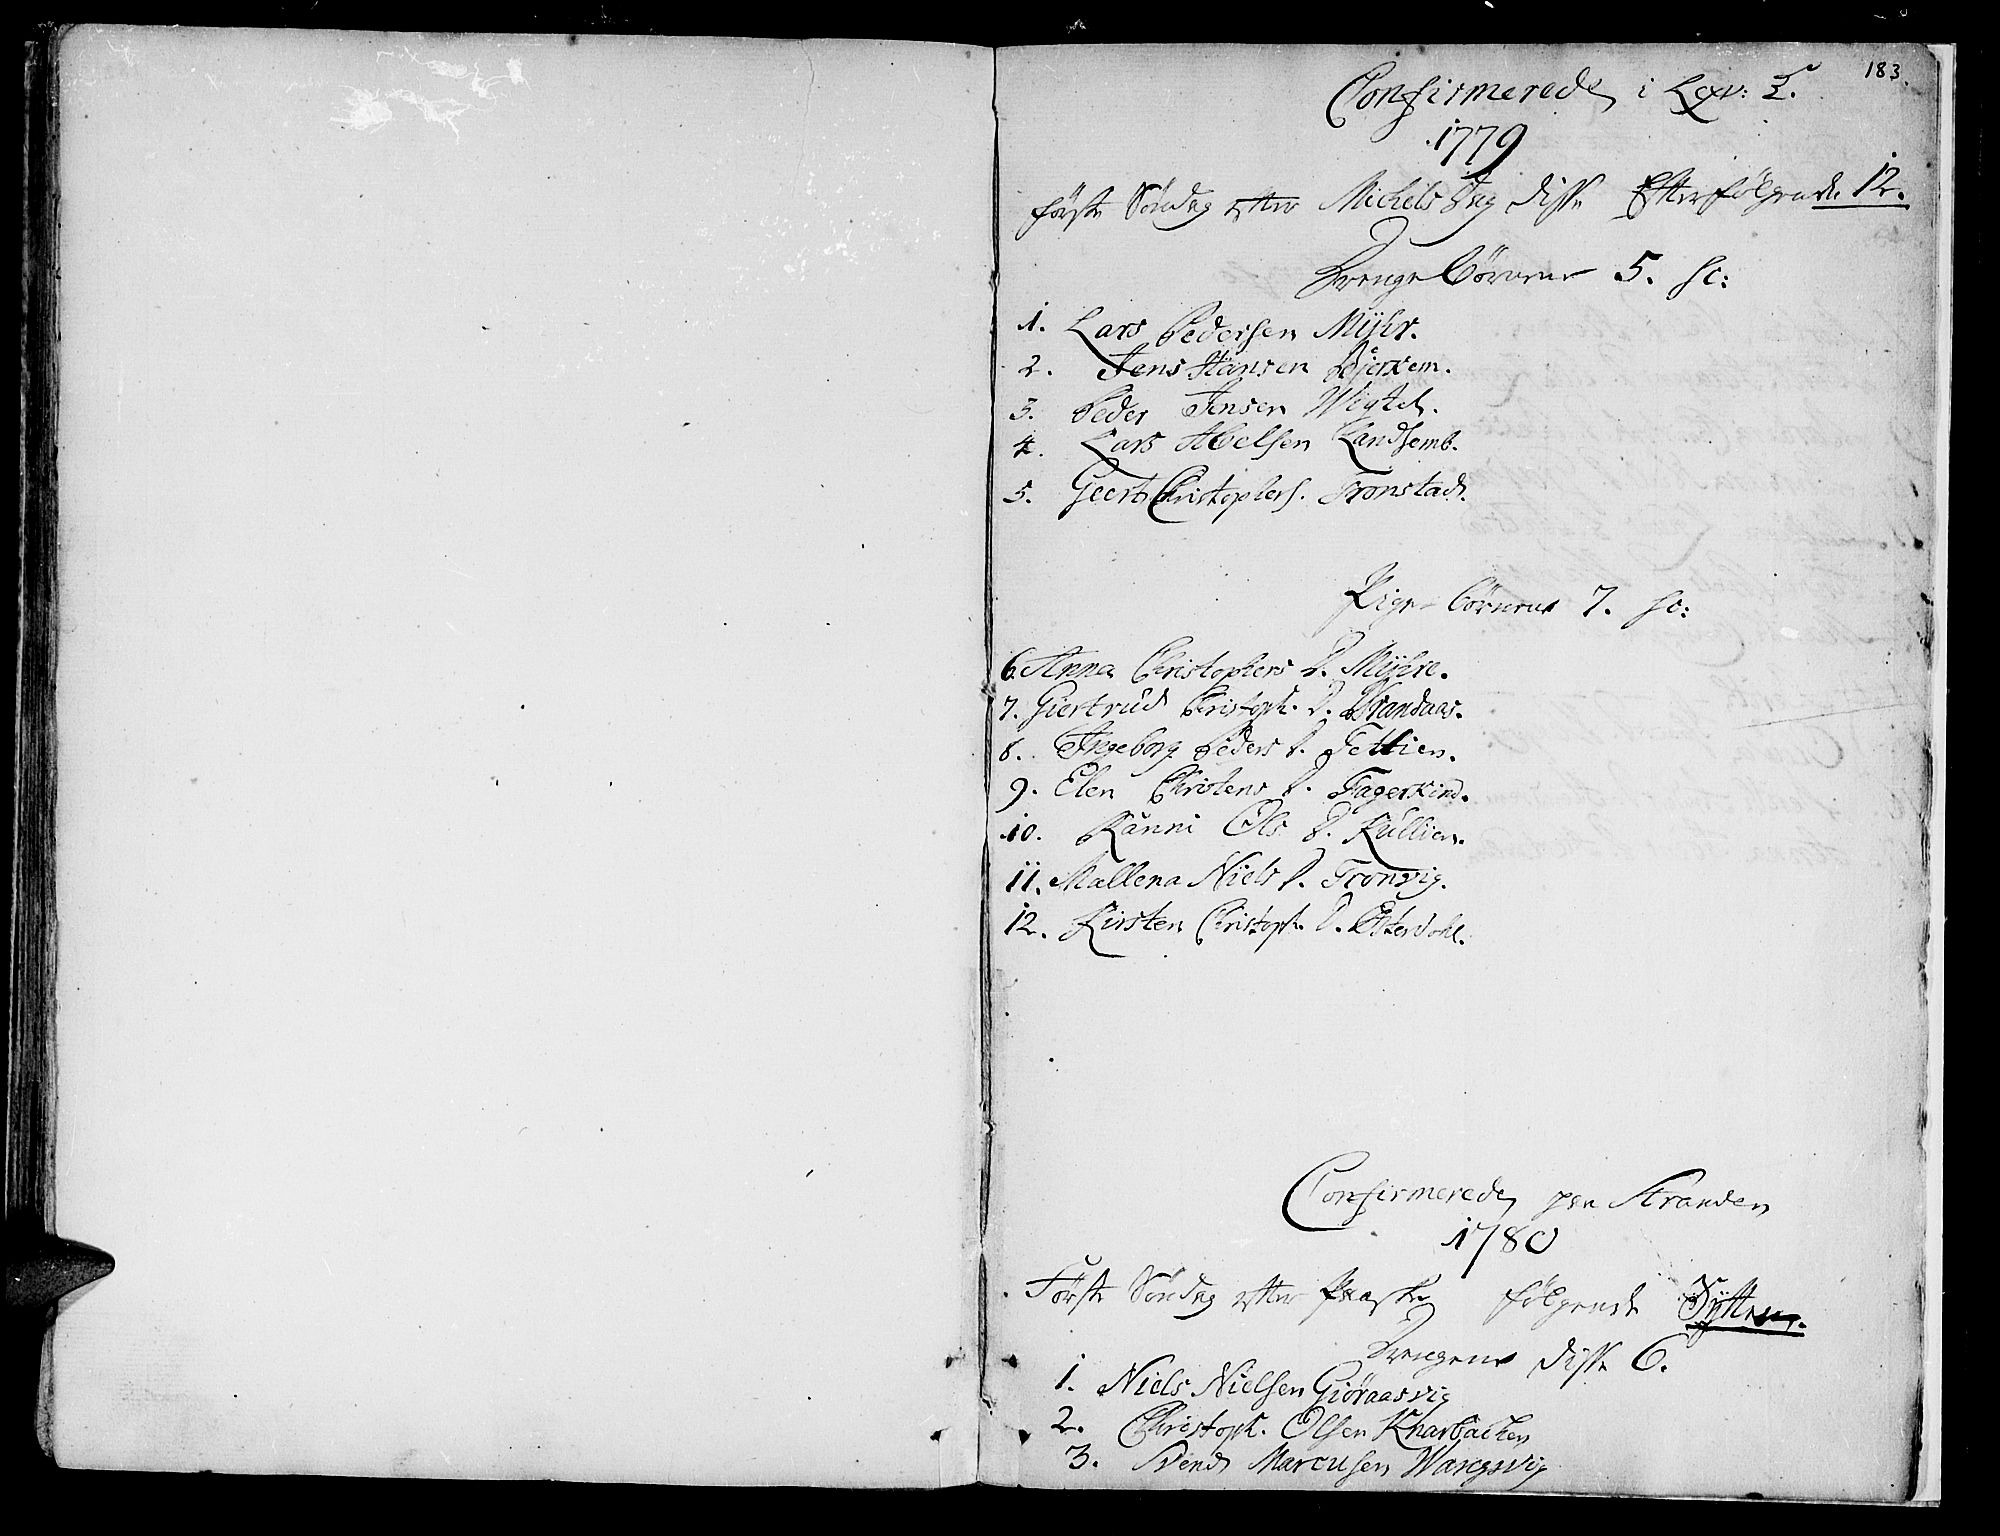 183.
Confirmerede i Lexv:
1779
første Søndag efter Michels Dag disse Efterfølgende 12.
Drenge Børnene 5. sc:
1. Lars Pedersen Mÿhr.
2. Jens Hansen Bjerkem.
3. Peder Jensen Wigtel.
4. Lars Abelsen Landsemb.
5. Geert Christophers. Tronstad.
Pige Børnene 7. sc:
6. Anna Christophers D. Mÿhre.
7. Giertrud Christoph. D. Brandaas.
8. Ingeborg Peders D. Fettien.
9. Elen Christens D. Fagerkind.
10. Ranni Ols D. Kullien.
11. Mallena Niels D. Tronvig.
12. Kirsten Christoph. D. Østerdahl.
Confirmerede paa Stranden
1780
Første Søndag efter Paaske følgende Sÿtten.
Drengene disse 6.
1. Niels Nielsen Giøraasvig
2. Christoph. Olsen Knarbacken
3. Svend Marcusen Wangsvig